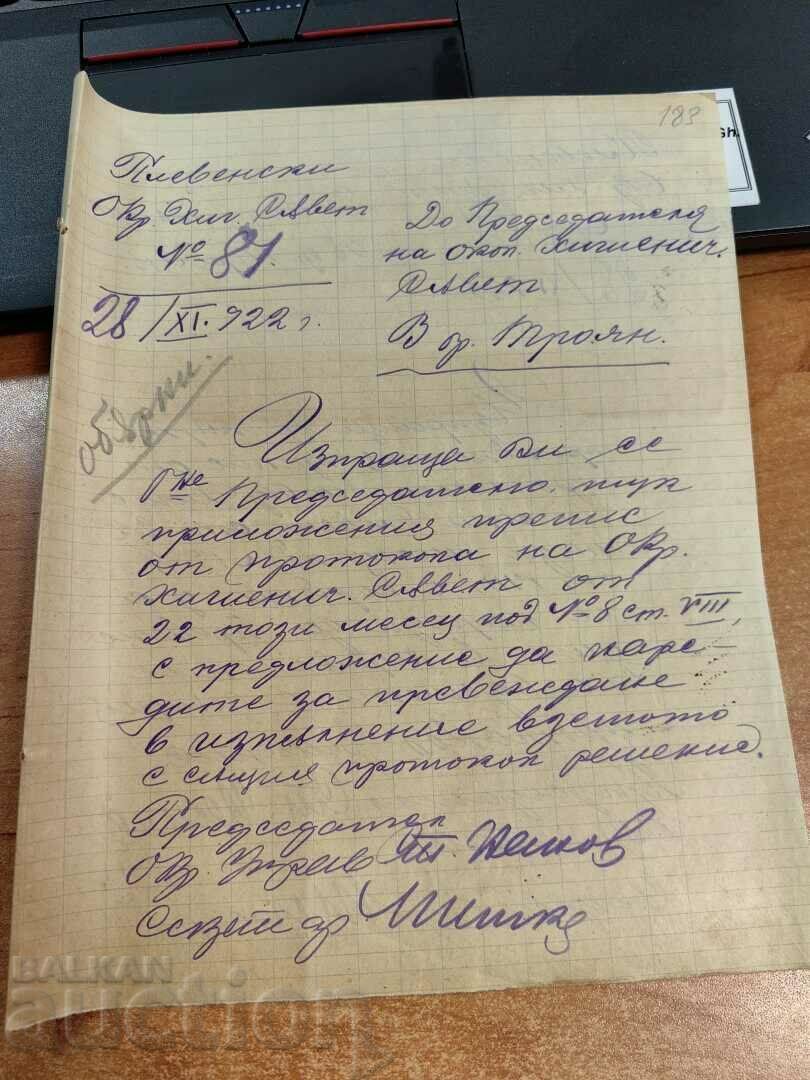 183
Плевенски
Окр. Хиг. Съвет
№ 81.
28/XI. 922 г.
До Председателя
на окол. Хигиенич.
Съвет
В гр. Троян.
обърни.
Изпраща Ви се
Г-не Председателю, тук
приложения препис
от протокола на Окр.
Хигиенич. Съвет от
22 този месец под № 8 ст. VIII,
с предложение да наре-
дите за превеждане
в изпълнение взетото
с същия протокол решение.
Председател
Окр. Управ.
Секретар
BALKAN
auction